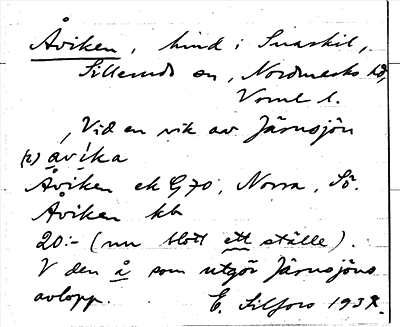 Åviken, hmd i Svaskil,
Sillerud sn, Nordmarks hd,
Vrml l.
Vid en vik av Järnsjön
(2) åvika
Åviken ek G70, Norra, Sö.
Åviken kb
20:- (nu blott ett ställe).
V den å som utgör Järnsjöns
avlopp. E. Lilfors 1932.